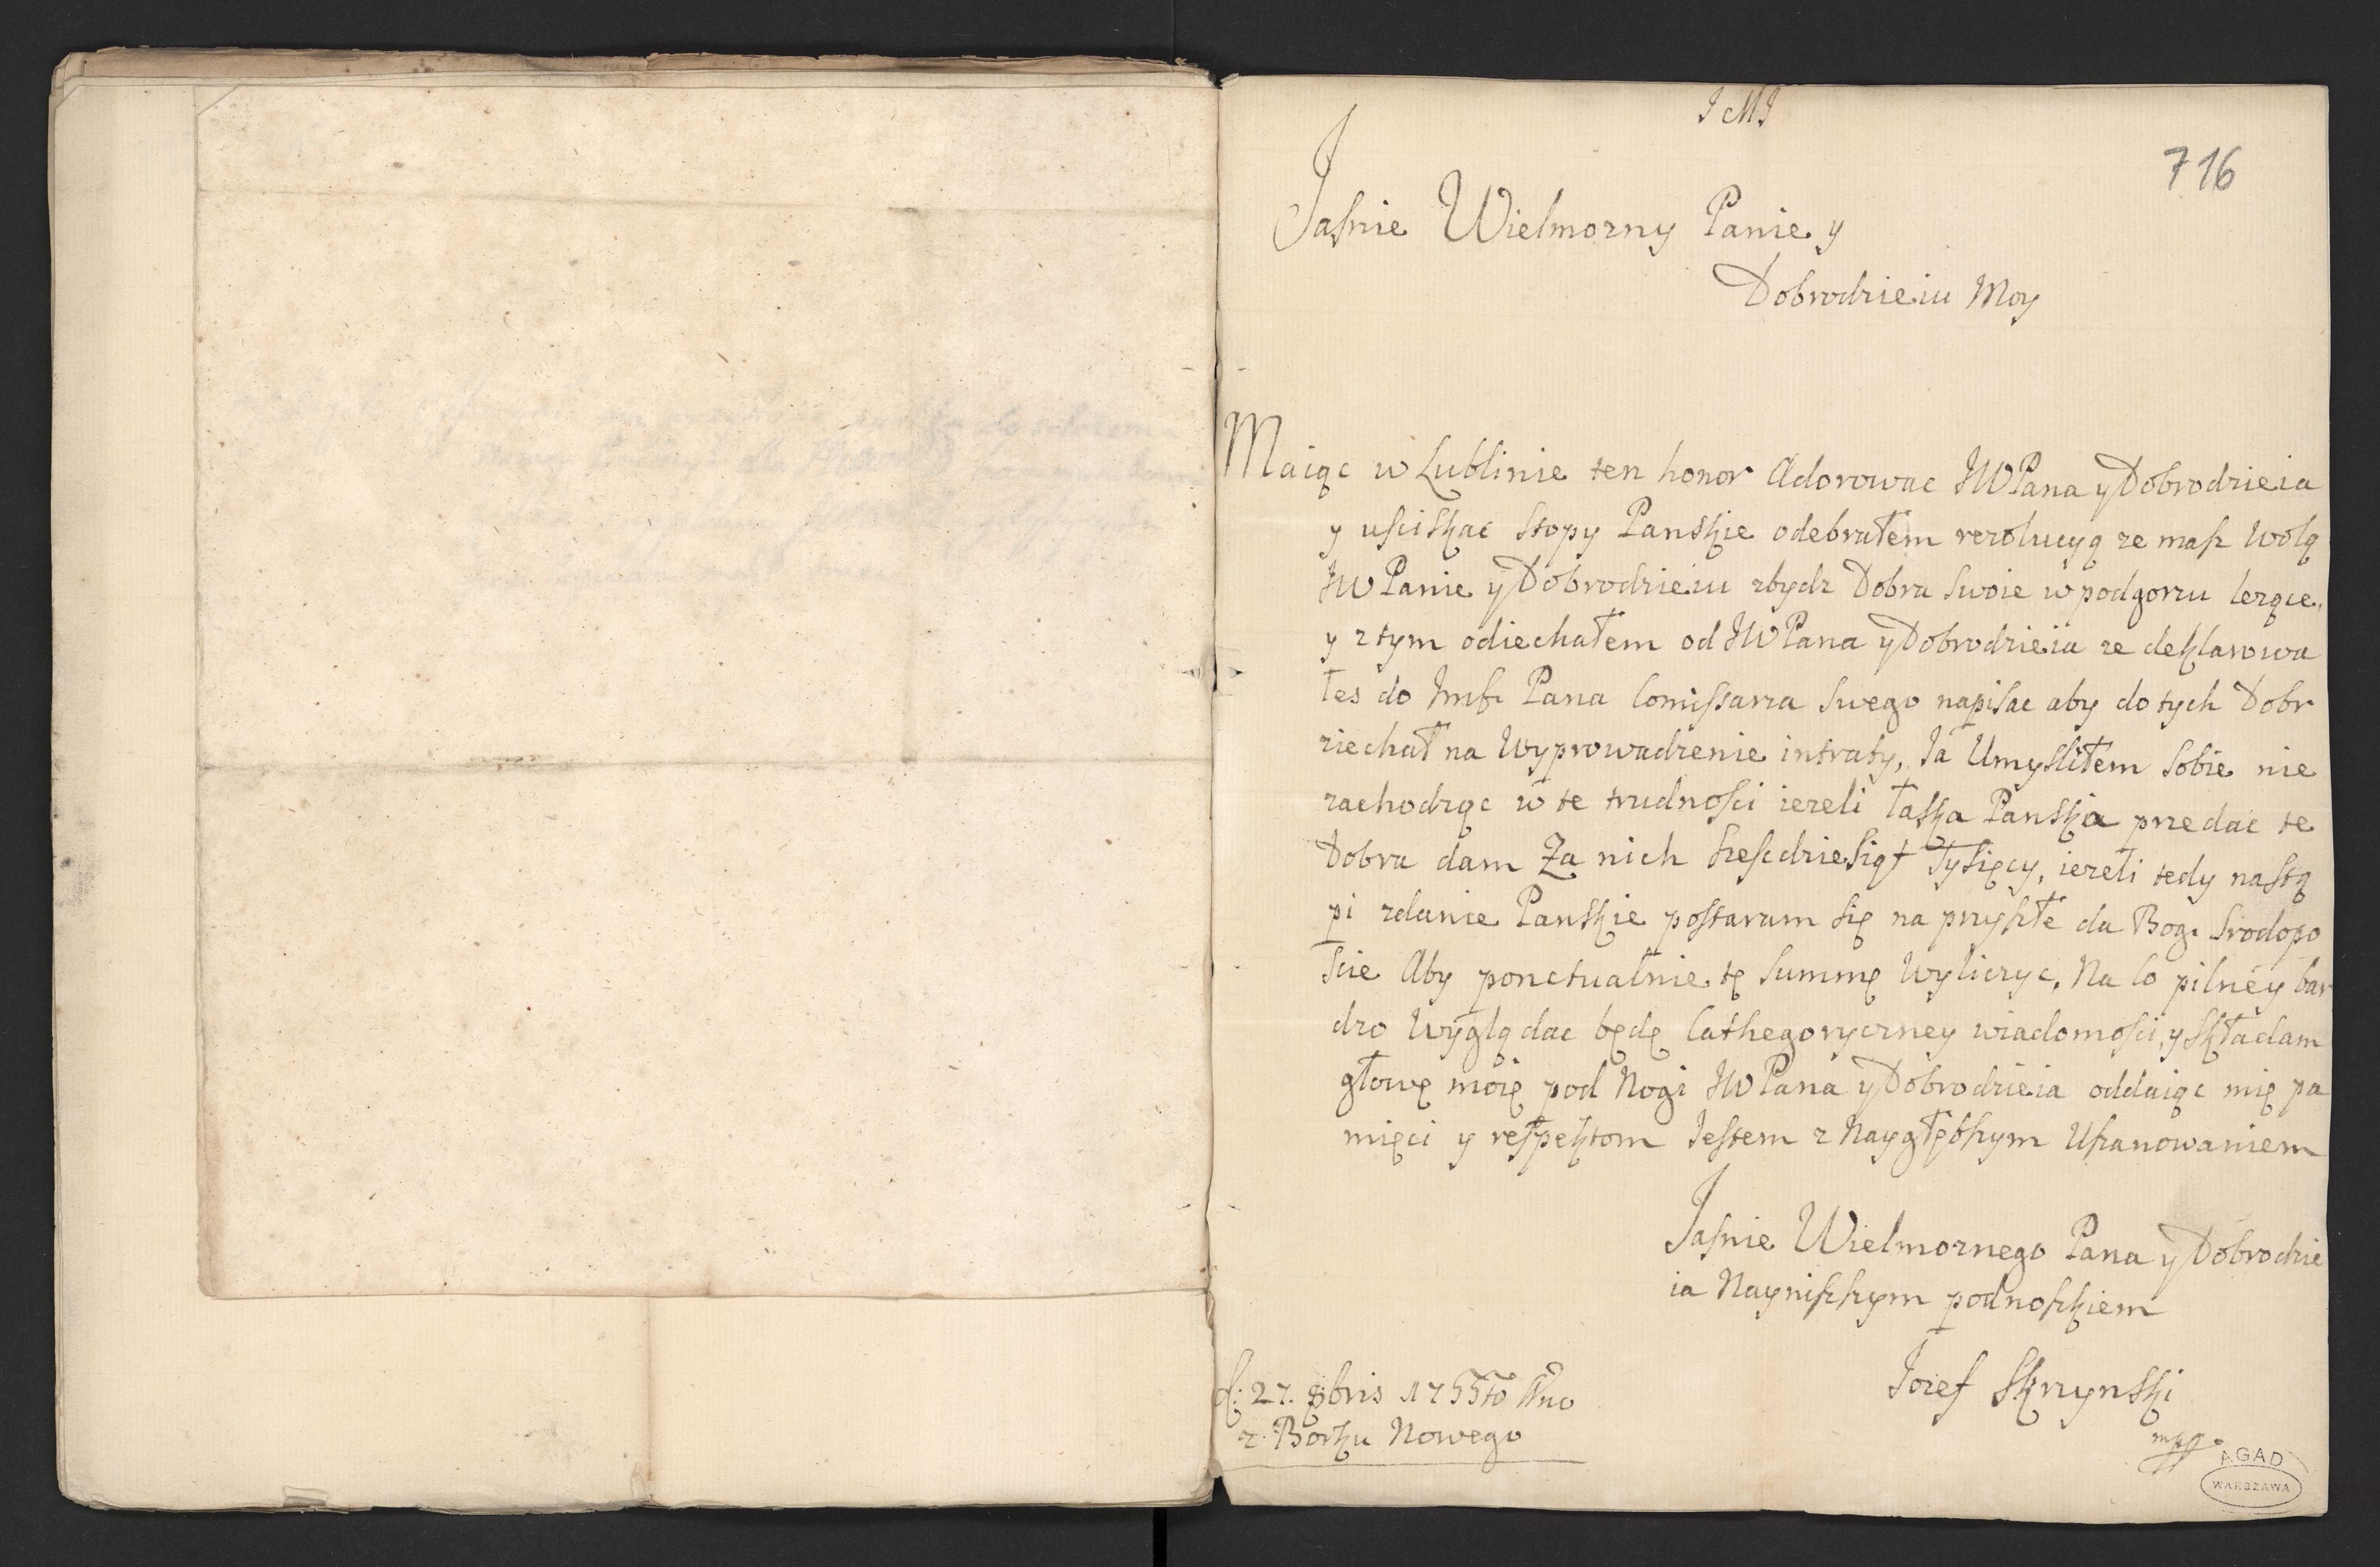 J M J
716
Jaśnie Wielmozny Panie y
Dobrodzieiu Moy
Maiąc w Lublinie ten honor Adorowac JWPana y Dobrodzieia
y uściskac stopy Panskie odebrałem rezolucyą ze masz wolą
JWPanie y Dobrodzieiu zbydz Dobra swoie w podgorzu lezące,
y z tym odiechałem od JWPana y Dobrodzieia ze deklarowa
łes do Jmści Pana Comissarza swego napisac aby do tych Dobr
ziechał na wyprowadzenie intraty, Ja Umysliłem sobie nie
zachodząc w te trudności iezeli łaska Panska przedac te
Dobra dam Za nich sześcdziesiąt Tysięcy, iezeli tedy nastą
pi zdanie Panskie postaram się na przyszłe da Bog. srodopo
scie Aby ponctualnie tę summę wyliczyc, Na co pilney bar
dzo wyglądac będę Cathegoryczney wiadomości, y składam
głowę moię pod Nogi JWPana y Dobrodzieia oddaiąc mię pa
mięci y respektom Jestem z Naygłębszym Uszanowaniem
Jaśnie Wielmoznego Pana y Dobrodzie
ia Nayniszszym podnoszkiem
Jozef Skrzynski
mpp
d: 27. 8bris 1755to Ano
z Borku Nowego
AGAD
WARSZAWA